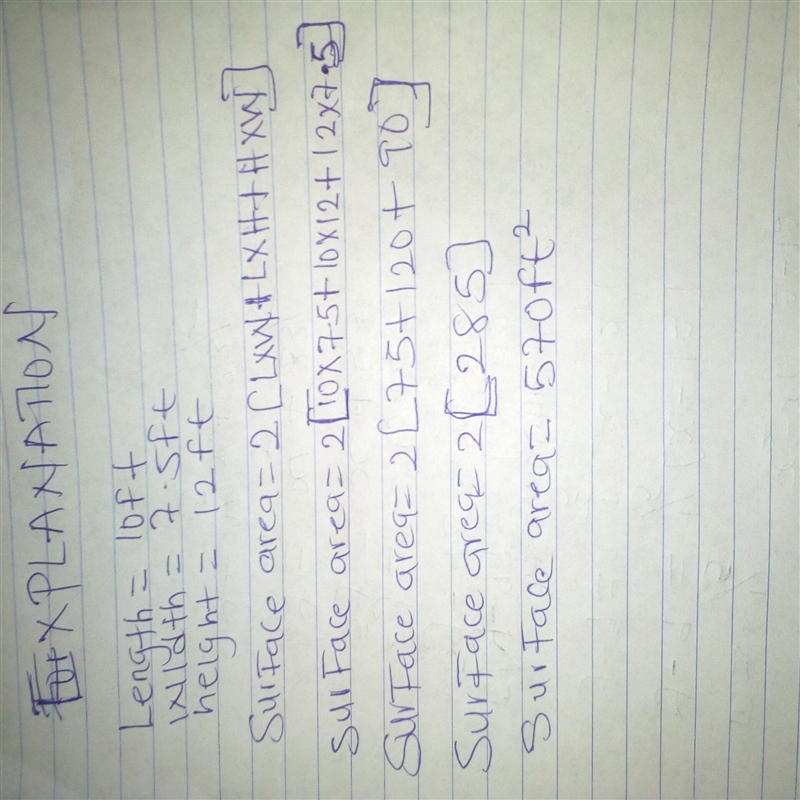 EXPLANATION
Length = 10ft
Width = 7.5ft
height = 12ft
Surface area = 2[LXW+LXH+HXW]
Surface area = 2[10X7.5+10X12+12X7.5]
Surface area = 2[75+120+90]
Surface area = 2[285]
Surface area = 570ft²